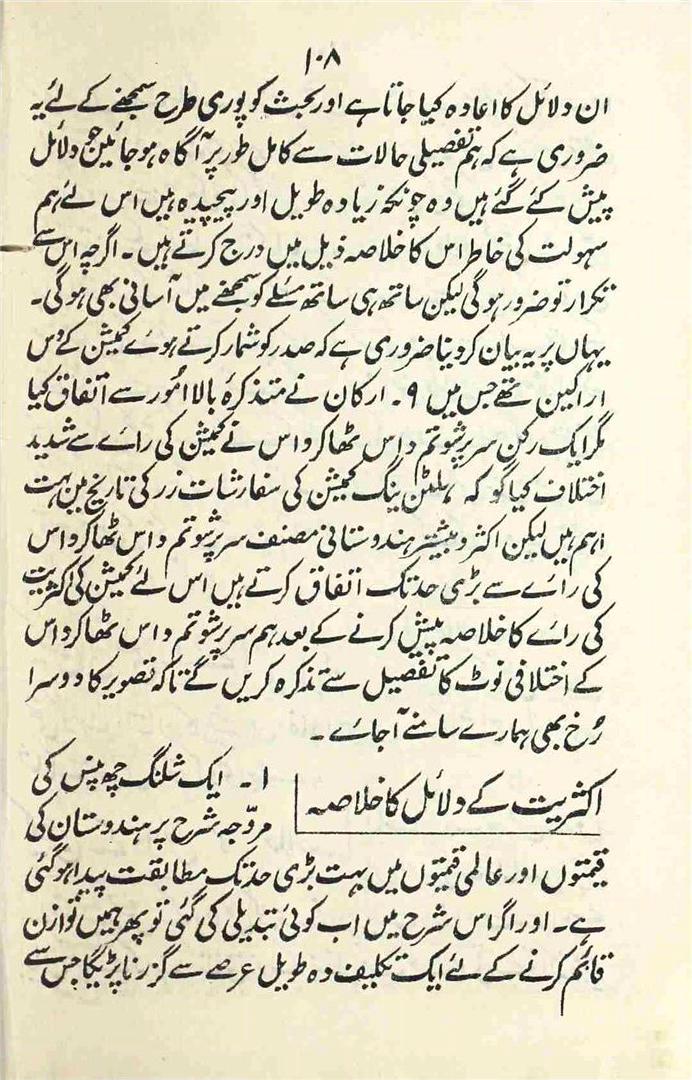 ۱۰۸
ان دلائل کا اعادہ کیا جاتا ہے اور بحث کو پوری طرح سمجھنے کے لئے یہ
ضروری ہے کہ ہم تفصیلی حالات سے کامل طور پر آگاہ ہو جائیں جو دلائل
پیش کئے گئے ہیں وہ چونکہ زیادہ طویل اور پیچیدہ ہیں اس لئے ہم
سہولت کی خاطر اس کا خلاصہ ذیل میں درج کرتے ہیں ۔ اگرچہ اس سے
تکرار تو ضرور ہوگی لیکن ساتھ ہی ساتھ مسئلے کو سمجھنے میں آسانی بھی ہوگی۔
یہاں پر یہ بیان کر دینا ضروری ہے کہ صدر کو شمار کرتے ہوئے کمیشن کے دس
اراکین تھے جس میں ۹ ۔ ارکان نے متذکرۂ بالا امُور سے اتفاق کیا
مگر ایک رکن سر پرشوتم داس ٹھاکر داس نے کمیشن کی رائے سے شدید
اختلاف کیا گو کہ ہلٹن ینگ کمیشن کی سفارشات زر کی تاریخ میں بہت
اہم ہیں لیکن اکثر و بیشتر ہندوستانی مصنف سر پرشوتم داس ٹھاکر داس
کی رائے سے بڑی حد تک اتفاق کرتے ہیں اس لئے کمیشن کی اکثریت
کی رائے کا خلاصہ پیش کرنے کے بعد ہم سر پرشوتم داس ٹھاکر داس
کے اختلافی نوٹ کا تفصیل سے تذکرہ کریں گے تاکہ تصویر کا دوسرا
رُخ بھی ہمارے سامنے آجائے ۔
اکثریت کے دلائل کا خلاصہ
۱ ۔ ایک شلنگ چھ پنس کی
مروّجہ شرح پر ہندوستان کی
قیمتوں اور عالمی قیمتوں میں بہت بڑی حد تک مطابقت پیدا ہوگئی
ہے ۔ اور اگر اس شرح میں اب کوئی تبدیلی کی گئی تو پھر ہمیں توازن
قائم کرنے کے لئے ایک تکلیف دہ طویل عرصے سے گزرنا پڑیگا جس سے